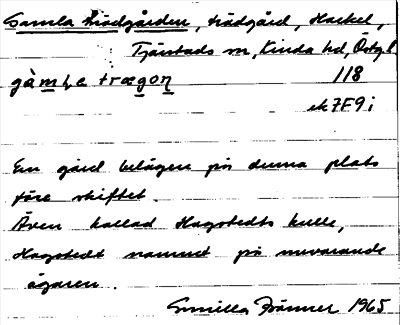 Gamla trädgården, trädgård, Hackel,
Tjärstads sn, Kinda hd, Östgl
gàmla trægon 118
ek 7F9i
En gård belägen på denna plats
före skiftet.
Även kallad Hagstedts kulle,
Hagstedt namnet på nuvarande
ägaren.
Gunilla 1965